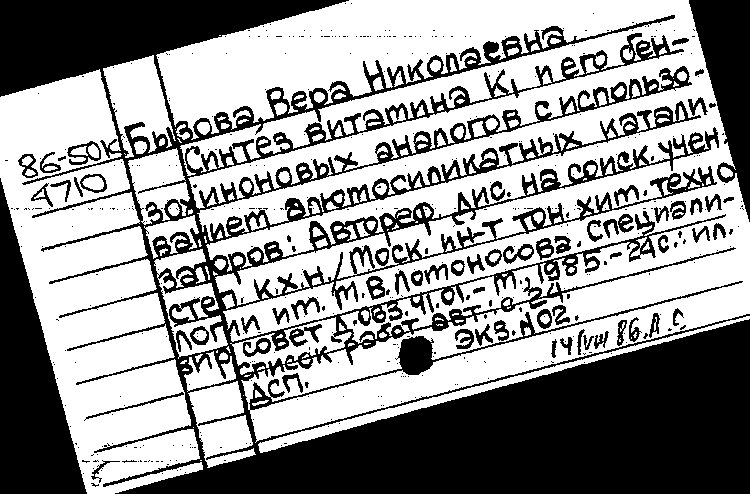 Бызова, Вера Николаевна.
86-50к
4710
Синтез витамина К₁ и его бен-
зохиноновых аналогов с использо-
ванием алюмосиликатных катали-
заторов: Автореф. дис. на соиск. учен.
степ. к.х.н. / Моск. ин-т тон. хим. техно
логии им. М.В.Ломоносова. Специали-
зир совет Д.063.41.01.- М., 1985.-24с.: ил.
список работ авт.: с. 24.
ДСП. Экз. №02.
14/VIII 86.